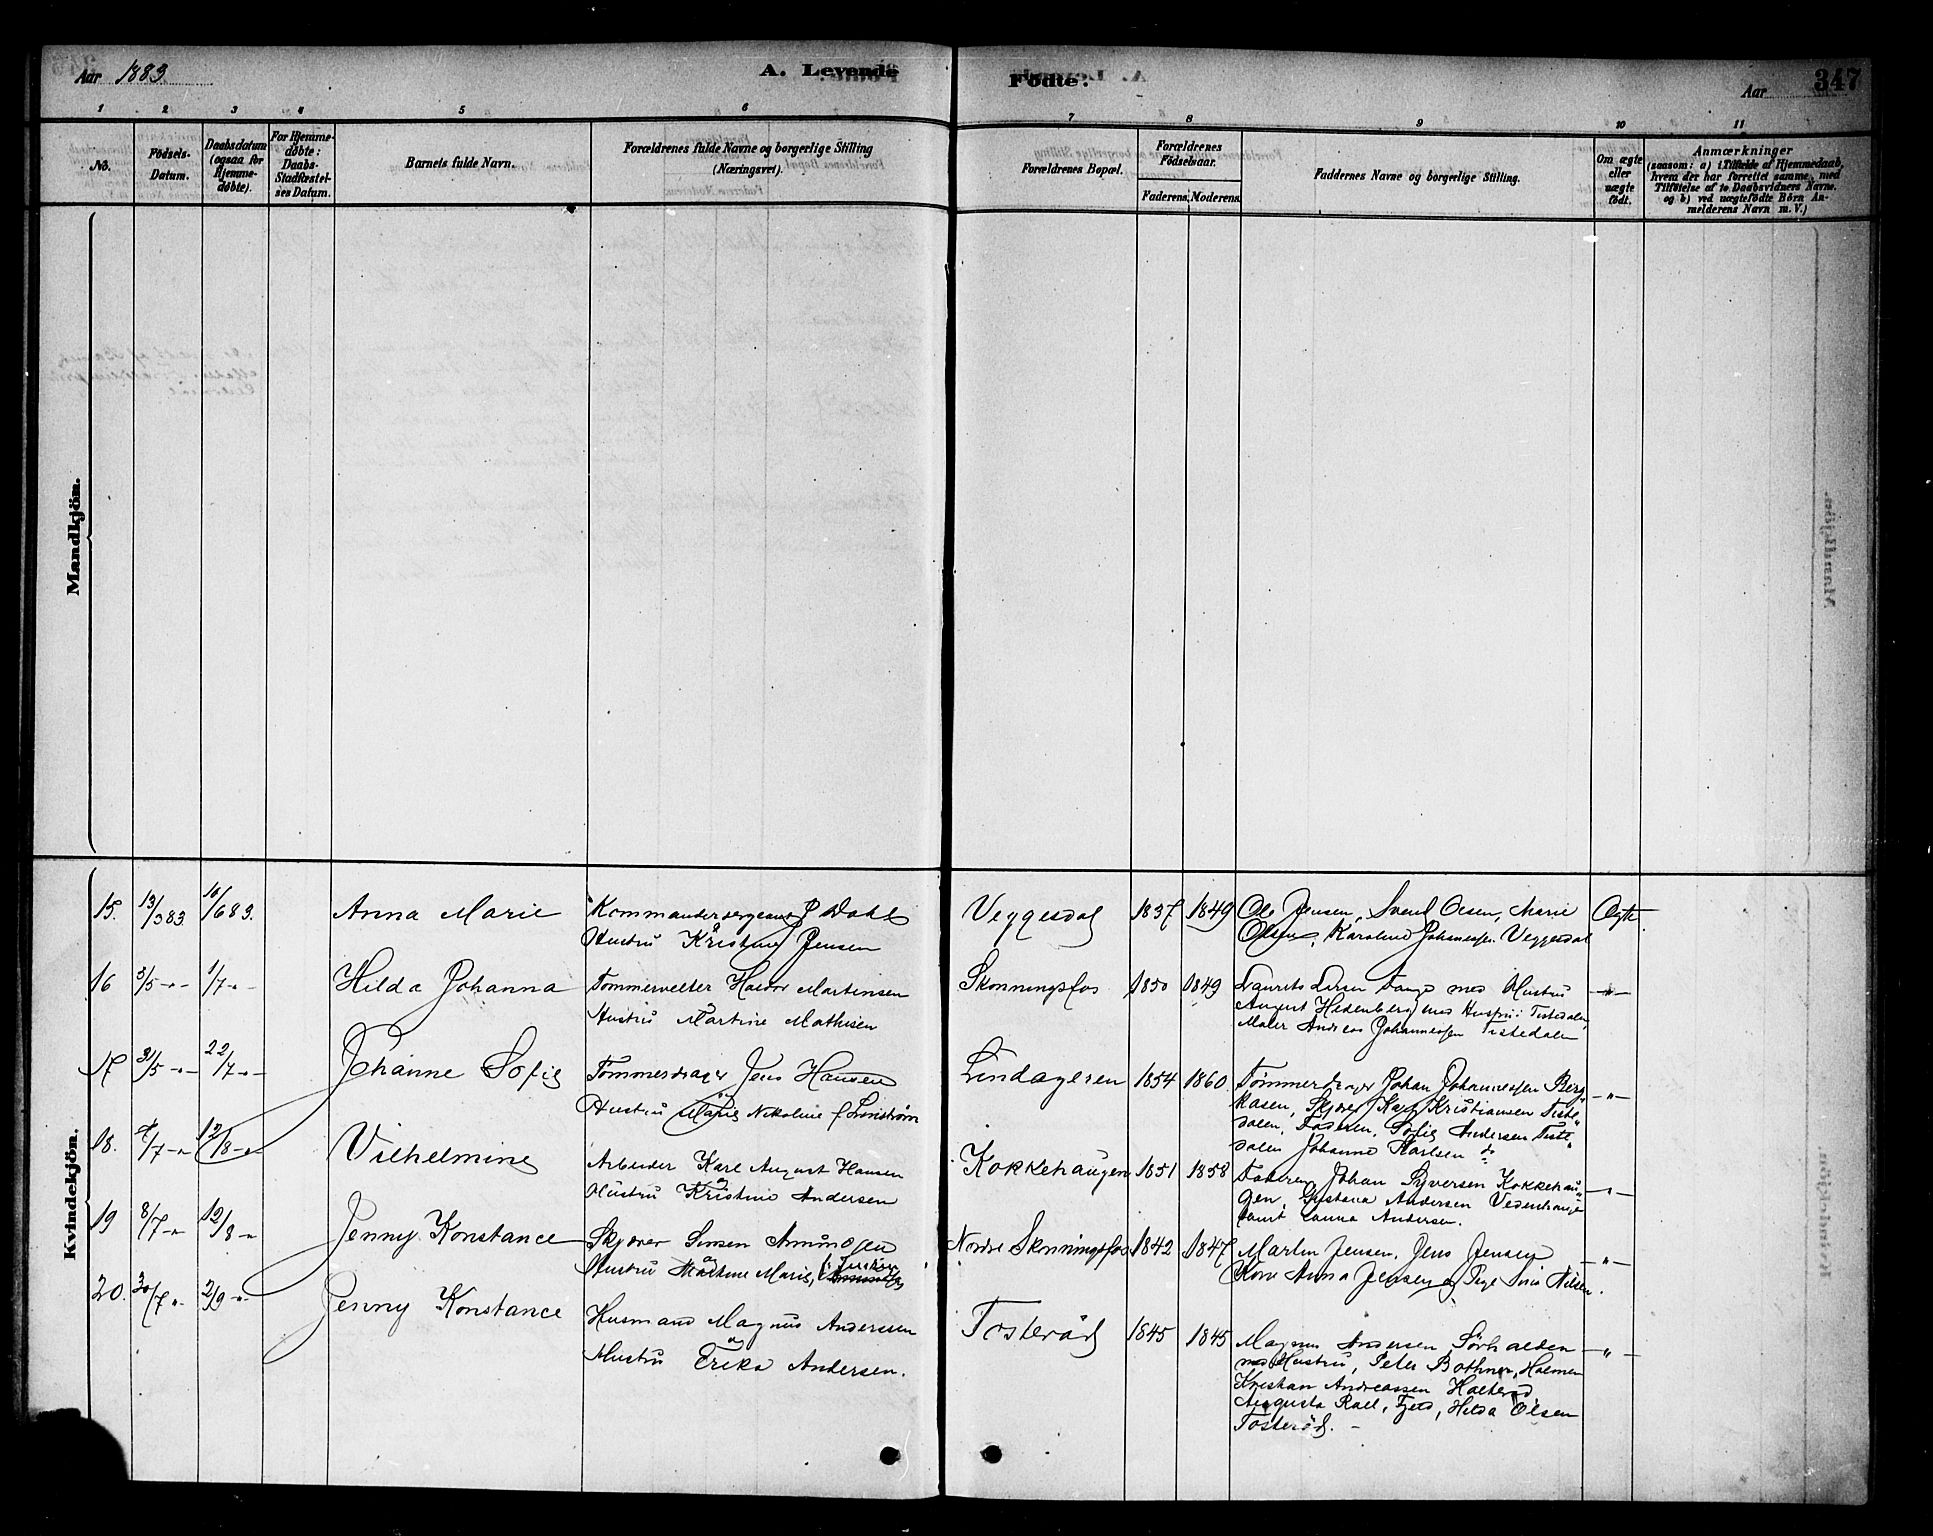 Aar 1883
A. Levende
Fødte.
Aar
347
1 2 3 4 5 6 7 8 9 10 11
No.
Fødsels-
Datum.
Daabsdatum
(ogsaa for
Hjemme-
døbte).
For Hjemme-
døbte:
Daabs-
Stadfæstel-
ses Datum.
Barnets fulde Navn.
Forældrenes fulde Navne og borgerlige Stilling
(Næringsvei).
Forældrenes Bopæl.
Forældrenes
Fødselsaar.
Faderens. Moderens.
Faddernes Navne og borgerlige Stilling.
Om ægte
eller
uægte
født.
Anmærkninger
(saasom: a) i Tilfælde af Hjemmedaab,
hvem der har forrettet samme, med
Tilføielse af to Daabsvidners Navne.
og b) ved uægtefødte Børn An-
melderens Navn m. V.)
Mandkjön.
Kvindekjön.
15. 13/3 83. 10/6 83. Anna Marie
Kommandersergeant P Dahl
Hustru Kristine Jensen
Veggesdal 1837 1849
Ole Jensen, Svend Olsen, Marie
Olsen, Karoline Johannesen Veggesdal
Ægte
16 3/5 -"- 1/7 -"- Hilda Johanna
Tømmervelter Halvor Martinsen
Hustru Martine Mathisen
Skonningsfos 1850 1849
Laurits Larsen Tange med Hustru
August Hedenberg med Hustru Tistedalen,
Maler Andreas Johannesen Tistedalen
-"-
17 31/5 -"- 22/7 -"- Johanne Sofie
Tømmerdrager Jens Hansen
Hustru Marie Nikoline f Lundstrøm
Lindageren 1854 1860
Tømmerdrager Johan Johannesen Berg-
kasen, Skjører Karl Kristiansen Tiste-
dalen, Faderen, Sofie Andersen Tiste-
dalen Johanne Karlsen do
-"-
18. 4/7 -"- 12/8 -"- Vilhelmine
Arbeider Karl August Hansen
Hustru Kristine Andersen
Kokkehaugen 1851 1858
Faderen, Johan Syversen Kokkehau-
gen, Gustava Andersen Vedenhauge
samt Launa Andersen.
-"-
19 8/7 -"- 12/8 -"- Jenny Konstance
Skjører Simen Amundsen
Hustru Mathine Marie,
Nordre Skonningsfos 1842 1847
Martin Jensen, Jens Jensen
Kone Anna Jensen og Pige Nilsen.
-"-
20. 30/7 -"- 2/9 -"- Jenny Konstance
Husmand Magnus Anderssen
Hustru Erika Andersen.
Tosterød 1845 1845
Magnus Andersen Sørhalden
med Hustru, Peter Bothner, Holmen
Kristian Andreassen Holterød,
Augusta Roll, Fjeld, Hilda Olsen
Tosterød. -
-"-